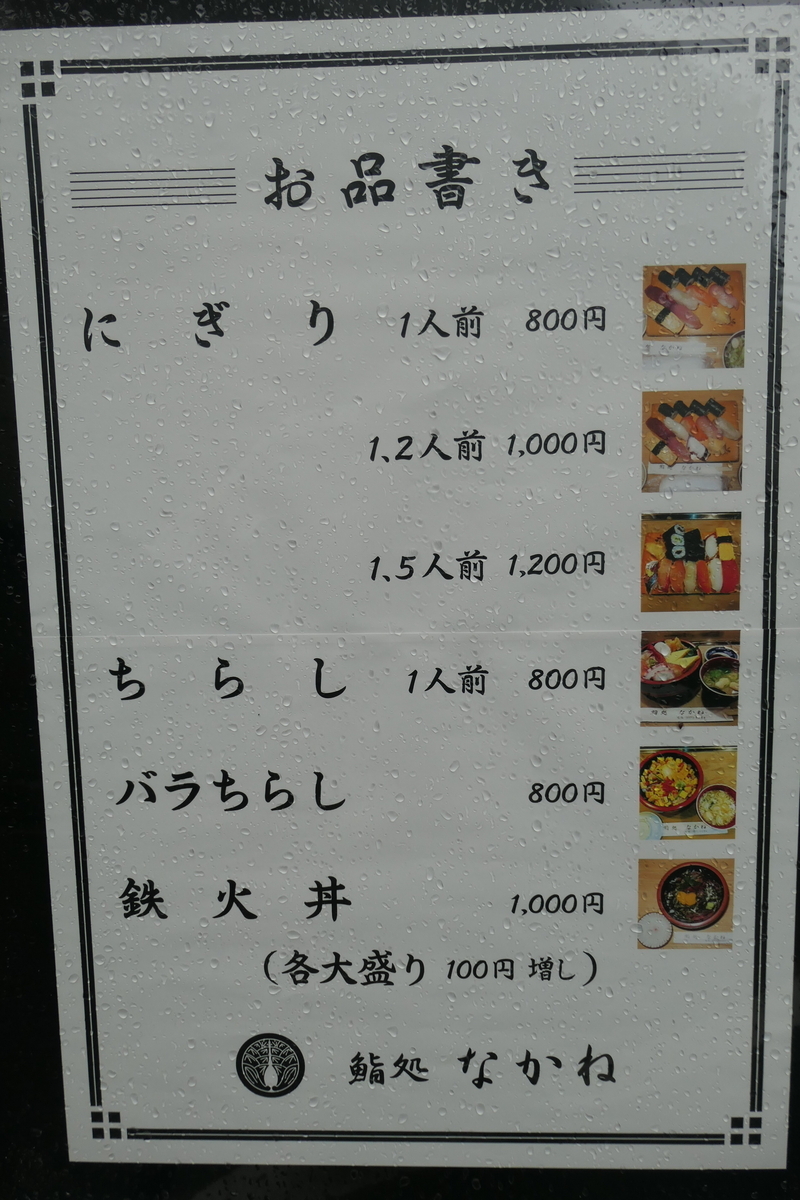 お品書き
にぎり 1人前 800円
1.2人前 1,000円
1.5人前 1,200円
ちらし 1人前 800円
バラちらし 800円
鉄火丼 1,000円
(各大盛り 100円 増し)
鮨処 なかね